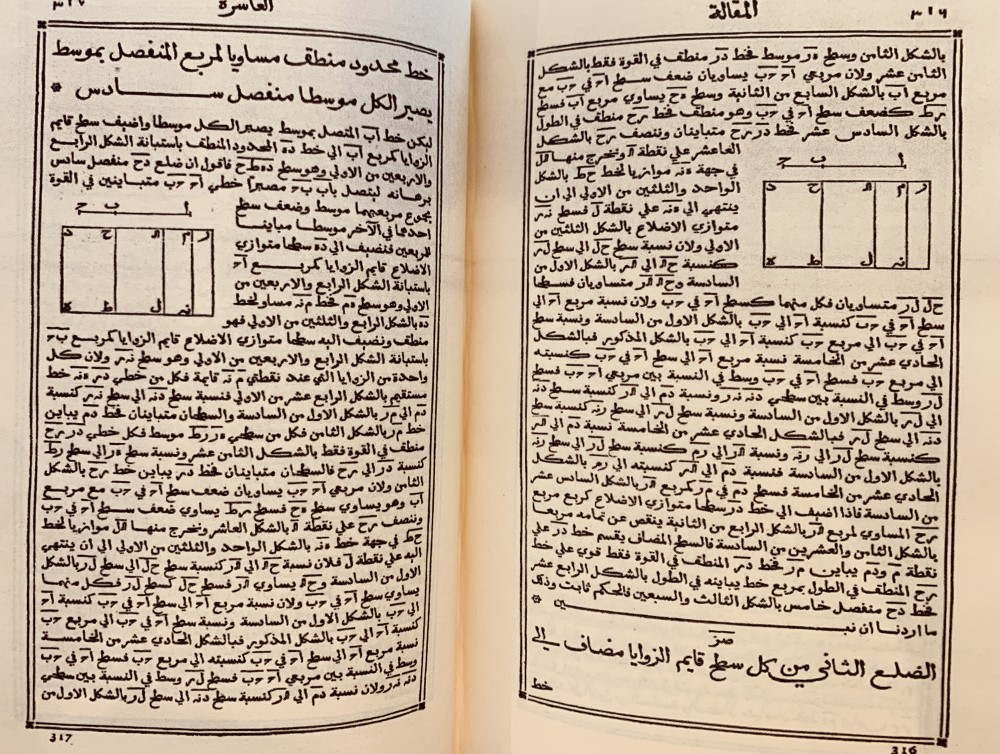 ٣١٦
المقالة
بالشكل الثامن وسطح ءر موسط فخط در منطق في القوة فقط بالشكل
الثامن عشر ولان مربعي اح حب يساويان ضعف سطح اح في حب مع
مربع اب بالشكل السابع من الثانية وسطح ءح يساوي مربع اب فسطح
رط كضعف سطح اح في حب وهو منطق فخط رح منطق في الطول
بالشكل السادس عشر فخط در رح متباينان وننصف رح بالشكل
العاشر علي نقطة ال ونخرج منها ال
في جهة ءنه موازيا لخط حط بالشكل
الواحد والثلثين من الاولي الي ان
ينتهي الي ءنه علي نقطة ل فسطح نر
متوازي الاضلاع بالشكل الثلثين من
الاولي ولان نسبة سطح حل الي سطح لر
كنسبة حال الي الر بالشكل الاول من
السادسة وحال الر متساويان فسطحا
حل لر متساويان فكل منهما كسطح اح في حب ولان نسبة مربع اح الي
سطح اح في حب كنسبة اح الي حب بالشكل الاول من السادسة ونسبة سطح
اح في حب الي مربع حب كنسبة اح الي حب بالشكل المذكور فبالشكل
الحادي عشر من الخامسة نسبة مربع اح الي سطح اح في حب كنسبته
الي مربع حب فسطح اح في حب وسط في النسبة بين مربعي اح حب فسطح
لر وسط في النسبة بين سطحي دنه نر ونسبة دم الي الر كنسبة سطح دنه
الي لر بالشكل الاول من السادسة ونسبة سطح لر الي سطح رنه كنسبة سطح
دنه الي سطح لر فبالشكل الحادي عشر من الخامسة نسبة دم الي الر
كنسبة سطح لر الي رنه ونسبة الر الي رم كنسبة سطح لر الي سطح رنه
بالشكل الاول من السادسة فنسبة دم الي الر كنسبته الي رم بالشكل
الحادي عشر من الخامسة فسطح دم في مر كمربع الر بالشكل السادس عشر
من السادسة فاذا اضيف الي خط در سطحا متوازي الاضلاع كربع مربع
رح المساوي لمربع الر بالشكل الرابع من الثانية ينقص عن تمامه مربعا
بالشكل الثامن والعشرين من السادسة فالسطح المضاف يقسم خط در علي
نقطة م ودم يباين مر فخط در المنطق في القوة فقط قوي علي خط
رح المنطق في الطول بمربع خط يباينه في الطول بالشكل الرابع عشر
فخط دح منفصل خامس بالشكل الثالث والسبعين فالحكم ثابت وذلك
ما اردنا ان نبين *
صز
الضلع الثاني من كل سطح قايم الزوايا مضاف الي
خط
316
ا ب ح
د ح ال م ر
ه ط ل نه
٣١٧
العاشرة
خط محدود منطق مساويا لمربع المنفصل بموسط
يصير الكل موسطا منفصل سادس *
ليكن خط اب المتصل بموسط يصير الكل موسطا واضيف سطح قايم
الزوايا كمربع اب الي خط ده المحدود المنطق باستبانة الشكل الرابع
والاربعين من الاولي وهو سطح دهطح فاقول ان ضلع دح منفصل سادس
برهانه ليتصل باب بح مصيرا خطي اح حب متباينين في القوة
مجموع مربعيهما موسط وضعف سطح
احدهما في الآخر موسطا مباينا
للمربعين فنضيف الي ده سطحا متوازي
الاضلاع قايم الزوايا كمربع اح
باستبانة الشكل الرابع والاربعين من
الاولي وهو سطح ءم فخط م نه مساو لخط
ده بالشكل الرابع والثلثين من الاولي فهو
منطق ونضيف اليه سطحا متوازي الاضلاع قايم الزوايا كمربع بح
باستبانة الشكل الرابع والاربعين من الاولي وهو سطح نر ولان كل
واحدة من الزوايا التي عند نقطتي م نه قايمة فكل من خطي در ءنه خط
مستقيم بالشكل الرابع عشر من الاولي فنسبة سطح دنه الي سطح نر كنسبة
دم الي مر بالشكل الاول من السادسة والسطحان متباينان فخط دم يباين
خط مر بالشكل الثامن فكل من سطحي ءر رط موسط فكل خطي در رح
منطق في القوة فقط بالشكل الثامن عشر ونسبة سطح ءر الي سطح رط
كنسبة در الي رح فالسطحان متباينان فخط در يباين خط رح بالشكل
الثامن ولان مربعي اح حب يساويان ضعف سطح اح في حب مع مربع
اب وهو يساوي سطح ءح فسطح رط يساوي ضعف سطح اح في حب
وننصف رح علي نقطة ال بالشكل العاشر ونخرج منها الل موازيا لخط
حط في جهة خط ءنه بالشكل الواحد والثلثين من الاولي الي ان ينتهي
اليه علي نقطة ل فلان نسبة حال الي الر كنسبة سطح حل الي سطح لر بالشكل
الاول من السادسة وحال يساوي الر فسطح حل كسطح لر فكل منهما
يساوي سطح اح في حب ولان نسبة مربع اح الي سطح اح في حب كنسبة اح
الي حب بالشكل الاول من السادسة ونسبة سطح اح في حب الي مربع حب
كنسبة اح الي حب بالشكل المذكور فبالشكل الحادي عشر من الخامسة
نسبة مربع اح الي سطح اح في حب كنسبته الي مربع حب فسطح اح في حب
وسط في النسبة بين مربعي اح حب فسطح لر وسط في النسبة بين سطحي
دنه نر ولان نسبة دم الي الر كنسبة سطح دنه الي سطح لر بالشكل الاول من
317
ا ب ح
د ح ال م ر
ه ط ل نه